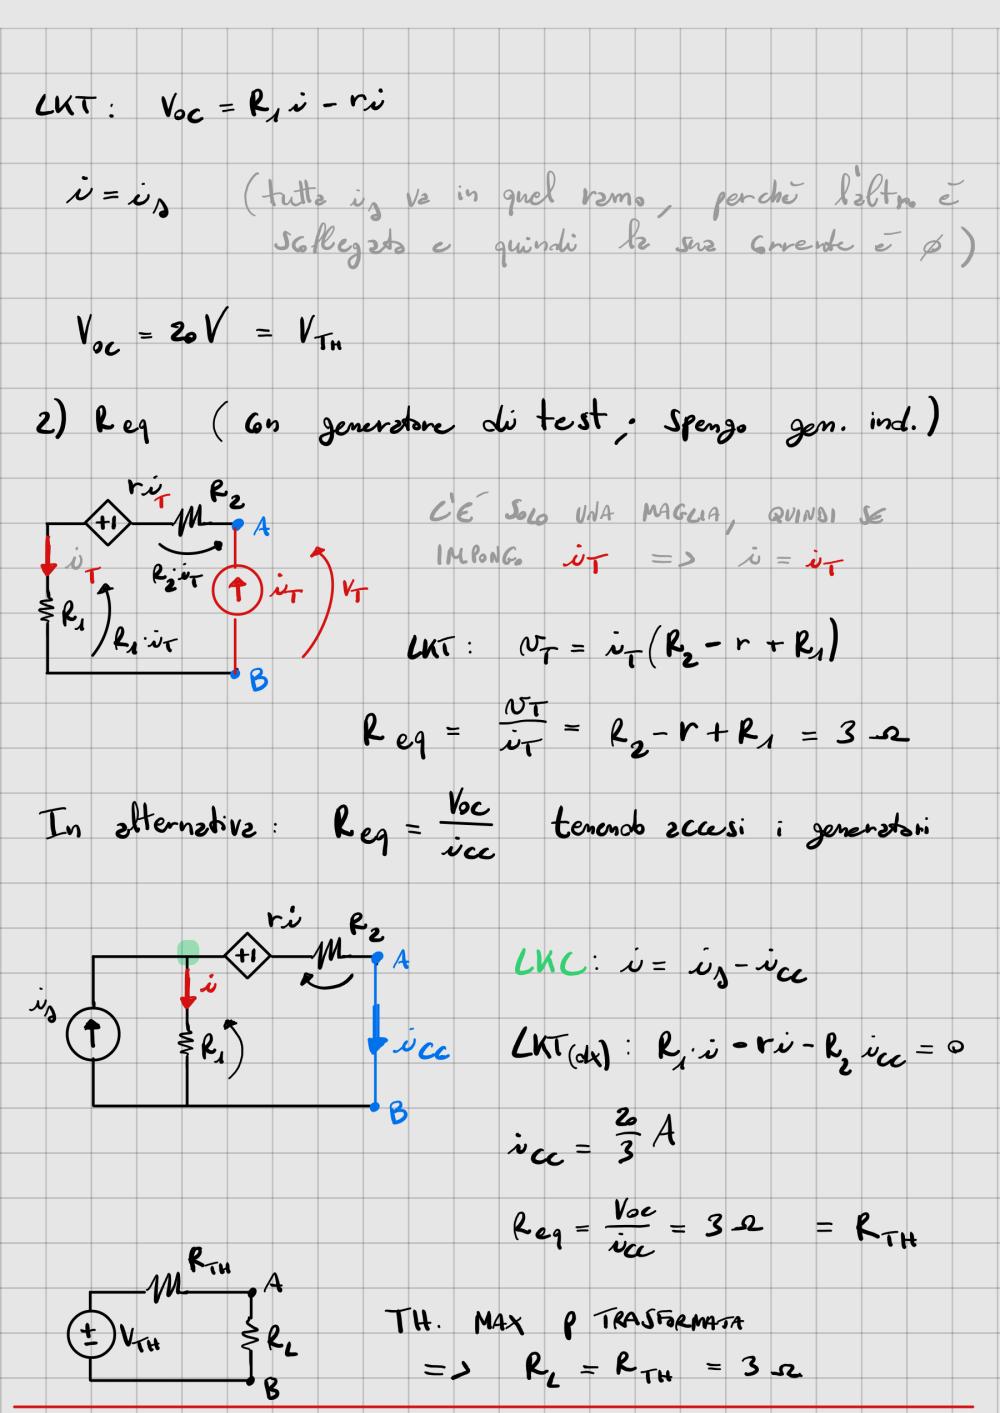 LKT: Voc = R1 i - ri
i = is (tutta is va in quel ramo, perchè l'altro è
scollegato e quindi la sua corrente è ø)
Voc = 20 V = VTH
2) Req (con generatore di test; spengo gen. ind.)
riT R2
+1 A
iT R2·iT iT vT
R1 R1·iT
B
C'È SOLO UNA MAGLIA, QUINDI SE
IMPONGO iT => i = iT
LKT: vT = iT(R2 - r + R1)
Req = vT/iT = R2 - r + R1 = 3 Ω
In alternativa: Req = Voc/icc tenendo accesi i generatori
ri R2
+1 A
is i
R1 icc
B
LKC: i = is - icc
LKT(dx): R1·i - ri - R2 icc = 0
icc = 20/3 A
Req = Voc/icc = 3 Ω = RTH
RTH A
± VTH RL
B
TH. MAX P TRASFORMATA
=> RL = RTH = 3 Ω